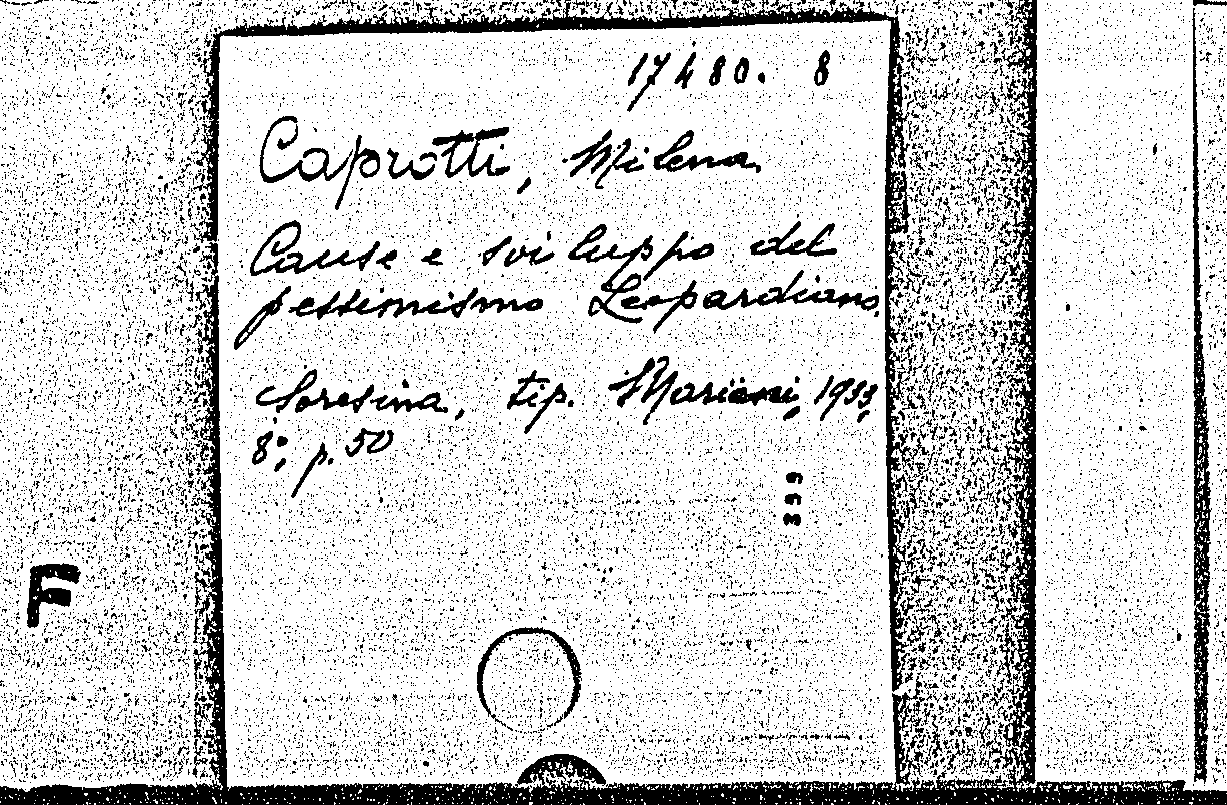 17480. 8
Caprotti, Milena.
Cause e sviluppo del
pessimismo Leopardiano.
Soresina, tip. Mariani, 1933,
8°, p. 50
399
F